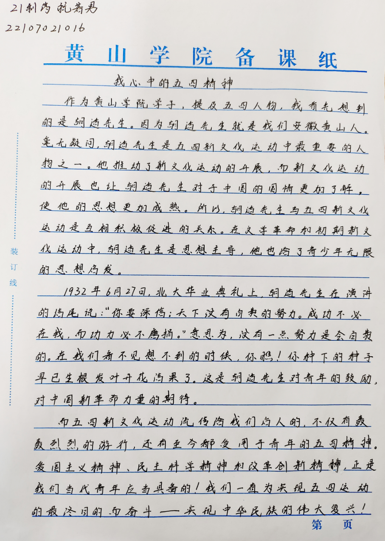 21制药 乳寿君
22107021016
黄山学院备课纸
我心中的五四精神
作为黄山学院学子，提及五四人物，我首先想到
的是胡适先生。因为胡适先生就是我们安徽黄山人。
毫无疑问，胡适先生是五四新文化运动中最重要的人
物之一。他推动了新文化运动的开展，而新文化运动
的开展也让胡适先生对于中国的国情更加了解。
使他的思想更加成熟。所以，胡适先生与五四新文化
运动是互相积极促进的关系。在文学革命和初期新文
化运动中，胡适先生是思想主导，他也给了青少年无限
的思想启发。
1932年6月27日，北大毕业典礼上，胡适先生在演讲
的结尾说：“你要深信：天下没有白费的努力。成功不必
在我，而功力必不唐捐。”意思为，没有一点努力是会白费
的。在我们看不见想不到的时候，你瞧！你种下的种子
早已生根发叶开花结果了。这是胡适先生对青年的鼓励，
对中国新革命力量的期待。
而五四新文化运动流传给我们后人的，不仅有轰
轰烈烈的游行，还有至今都受用于青年的五四精神。
爱国主义精神、民主科学精神和改革创新精神，正是
我们当代青年应当具备的！我们一直为实现五四运动
的最终目的而奋斗——实现中华民族的伟大复兴！
第 页
装订线